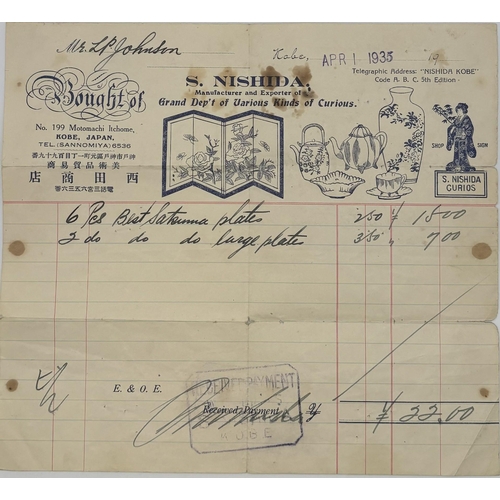 Mr. L.P. Johnson
Kobe, APR 1 1935 19
Telegraphic Address: "NISHIDA KOBE"
Code A. B. C. 5th Edition
S. NISHIDA,
Manufacturer and Exporter of
Grand Dep't of Various Kinds of Curious.
Bought of
No. 199 Motomachi Itchome,
KOBE, JAPAN.
TEL. (SANNOMIYA) 6536
神戸市神戸區元町一丁目百九十九番
美術品貿易商
西田商店
電話三宮六五三六番
SHOP SIGN
S. NISHIDA
CURIOS
6 Pcs Best Satsuma plates 2.50 ¥ 15.00
2 do do do large plates 3.50 " 7.00
E. & O. E.
RECEIVED PAYMENT
Received Payment
KOBE
¥ 22.00